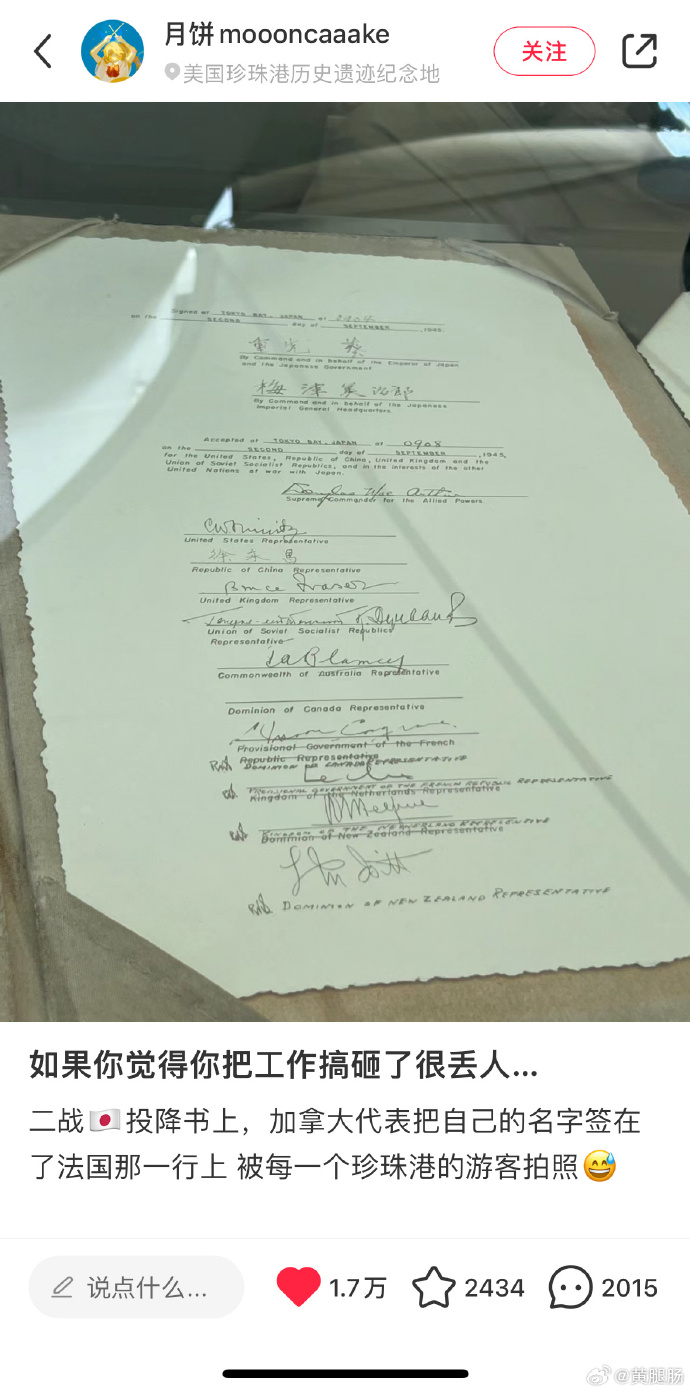 月饼moooncaaake
关注
美国珍珠港历史遗迹纪念地
Signed at TOKYO BAY, JAPAN at 0904
on the SECOND day of SEPTEMBER, 1945.
重光葵
By Command and in behalf of the Emperor of Japan
and the Japanese Government.
梅津美治郎
By Command and in behalf of the Japanese
Imperial General Headquarters.
Accepted at TOKYO BAY, JAPAN at 0908
on the SECOND day of SEPTEMBER, 1945,
for the United States, Republic of China, United Kingdom and the
Union of Soviet Socialist Republics, and in the interests of the other
United Nations at war with Japan.
Douglas MacArthur
Supreme Commander for the Allied Powers.
CW Nimitz
United States Representative
徐永昌
Republic of China Representative
Bruce Fraser
United Kingdom Representative
Union of Soviet Socialist Republics
Representative
T A Blamey
Commonwealth of Australia Representative
Dominion of Canada Representative
Provisional Government of the French
Republic Representative
DOMINION OF CANADA REPRESENTATIVE
PROVISIONAL GOVERNMENT OF THE FRENCH REPUBLIC REPRESENTATIVE
Kingdom of the Netherlands Representative
KINGDOM OF THE NETHERLAND REPRESENTATIVE
Dominion of New Zealand Representative
DOMINION OF NEW ZEALAND REPRESENTATIVE
如果你觉得你把工作搞砸了很丢人...
二战🇯🇵投降书上，加拿大代表把自己的名字签在
了法国那一行上 被每一个珍珠港的游客拍照😅
说点什么...
1.7万
2434
2015
@黄腿肠